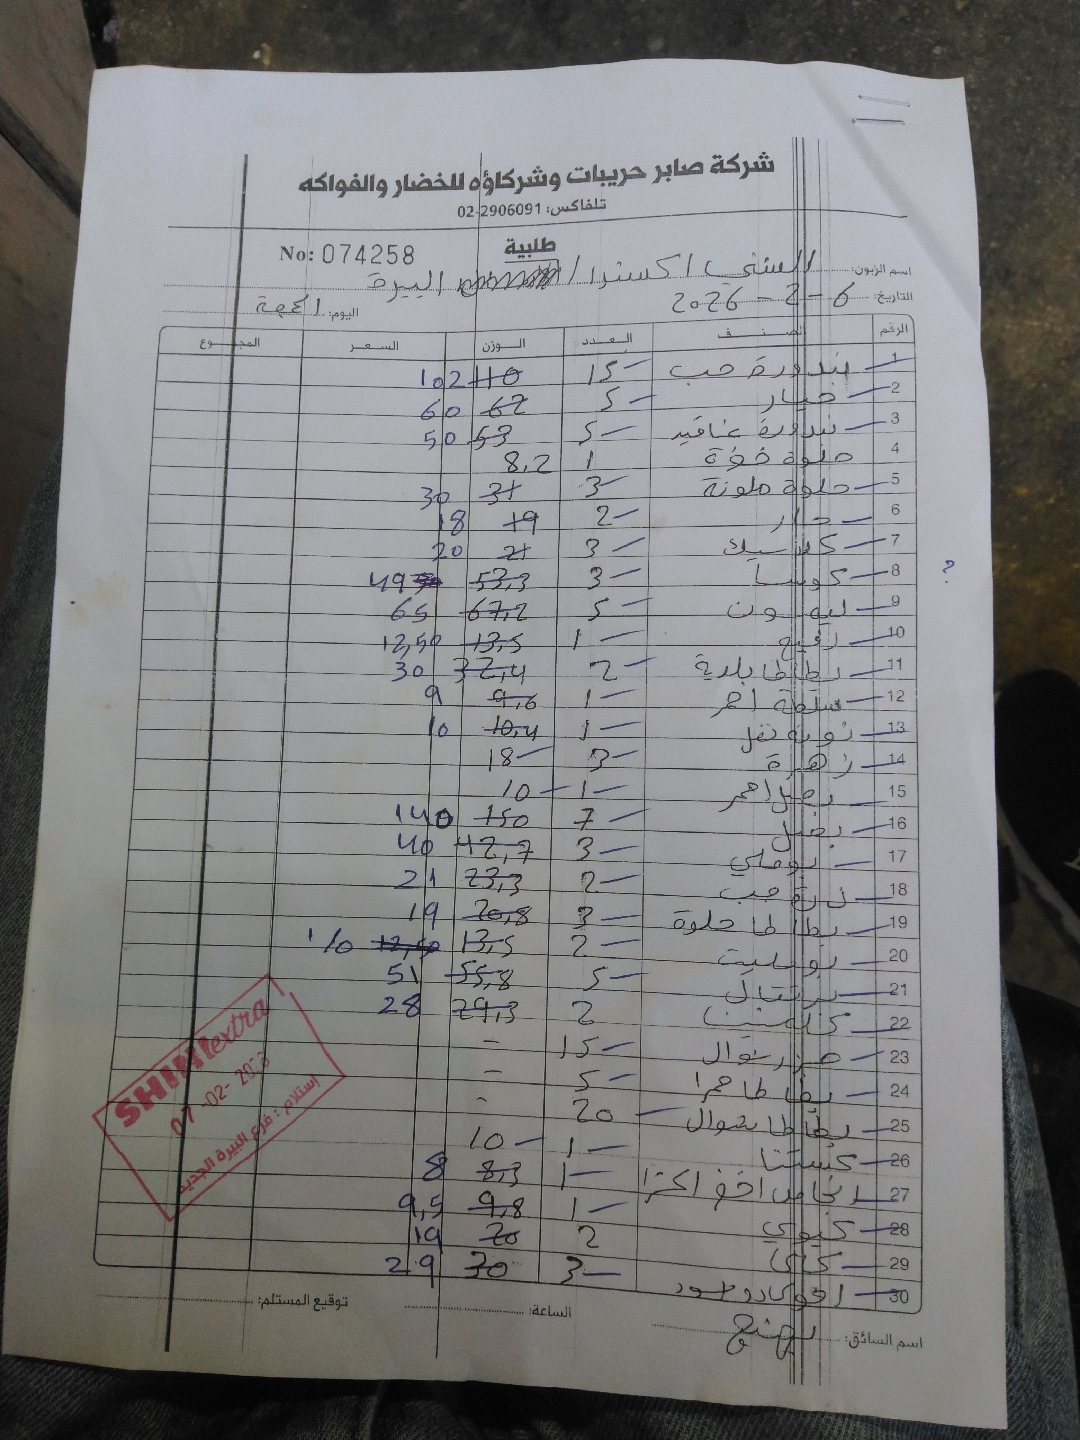 شركة صابر حريبات وشركاؤه للخضار والفواكه
تلفاكس: 02-2906091
طلبية
No: 074258
اسم الزبون: الشني اكسترا / البيرة
التاريخ: 6-2-2026 اليوم: الجمعة
الرقم الصنف العدد الوزن السعر المجموع
1 بندورة حب 15 110 102
2 خيار 5 62 60
3 بندورة عناقيد 5 53 50
4 حلوة 1 8,2
5 حلوة ملونة 3 31 30
6 حار 2 19 18
7 كلاسيك 3 21 20
8 كوسا 3 53,3 49 ?
9 ليمون 5 67,2 65
10 1 13,5 12,50
11 بطاطا بلدية 2 32,4 30
12 احمر 1 9,6 9
13 1 10,4 10
14 زهرة 3 18
15 بصل احمر 1 10
16 بصل 7 150 140
17 بوملي 3 42,7 40
18 حب 2 23,3 21
19 بطاطا حلوة 3 20,8 19
20 2 13,5 12,50
21 برتقال 5 55,8 51
22 كلمنتينا 2 29,3 28
23 جزر شوال 15 -
24 بطاطا حمرا 5 -
25 بطاطا شوال 20 -
26 كستنا 1 10
27 1 8,3 8
28 كيوي 1 9,8 9,5
29 2 20 19
30 افوكادو 3 30 29
اسم السائق: الساعة: توقيع المستلم:
SHINI extra
07-02-
استلام: فرع البيرة الجديد